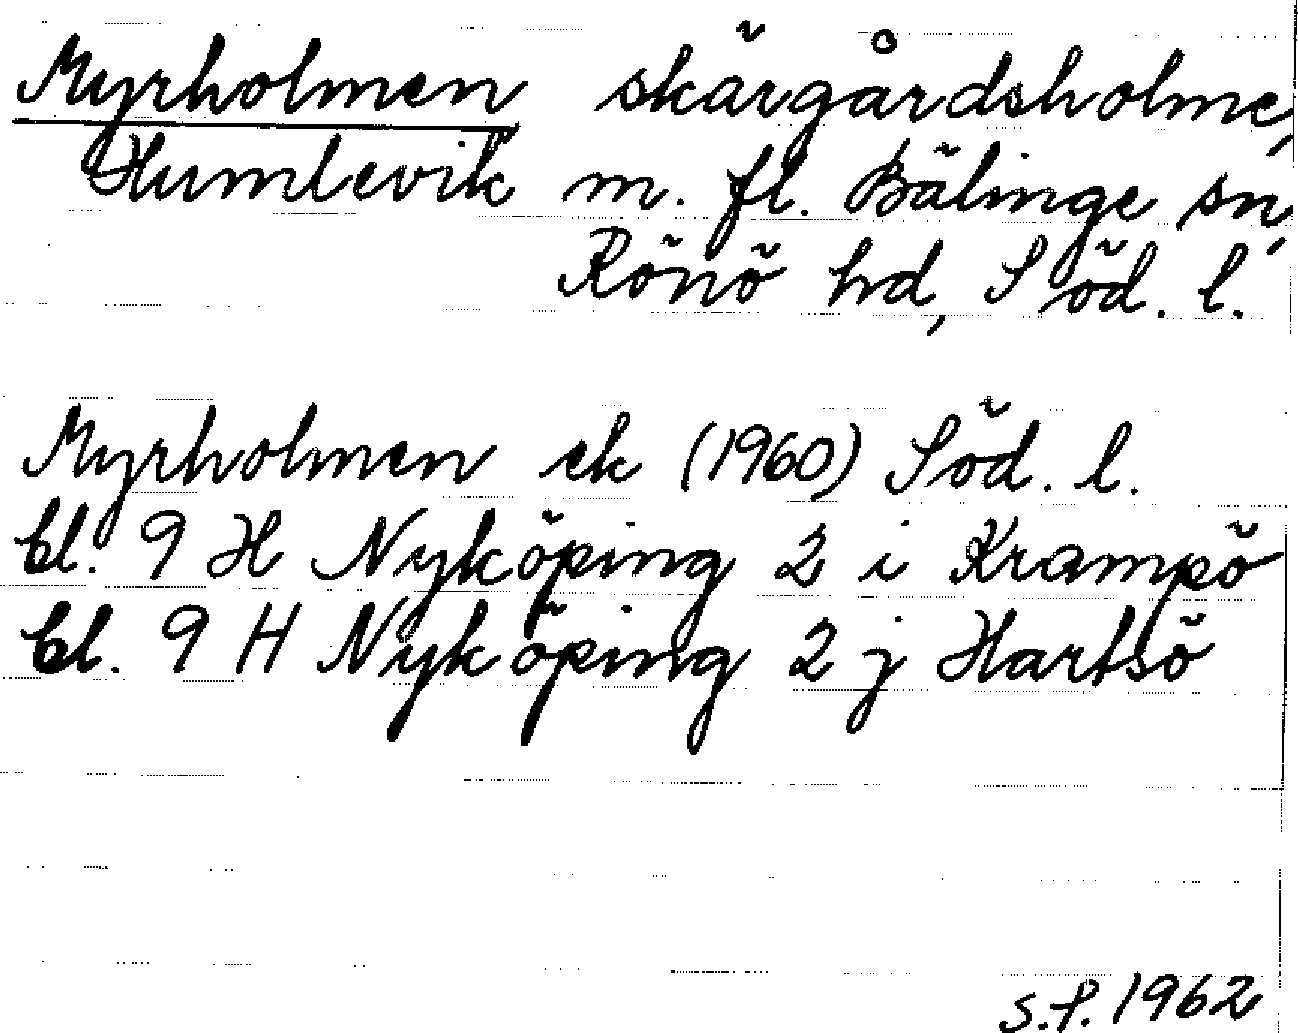 Myrholmen skärgårdsholme,
Humlevik m. fl. Bälinge sn,
Rönö hd, Söd. l.
Myrholmen ek (1960) Söd. l.
bl. 9 H Nyköping 2 i Krampö
bl. 9 H Nyköping 2 j Hartsö
S.P. 1962